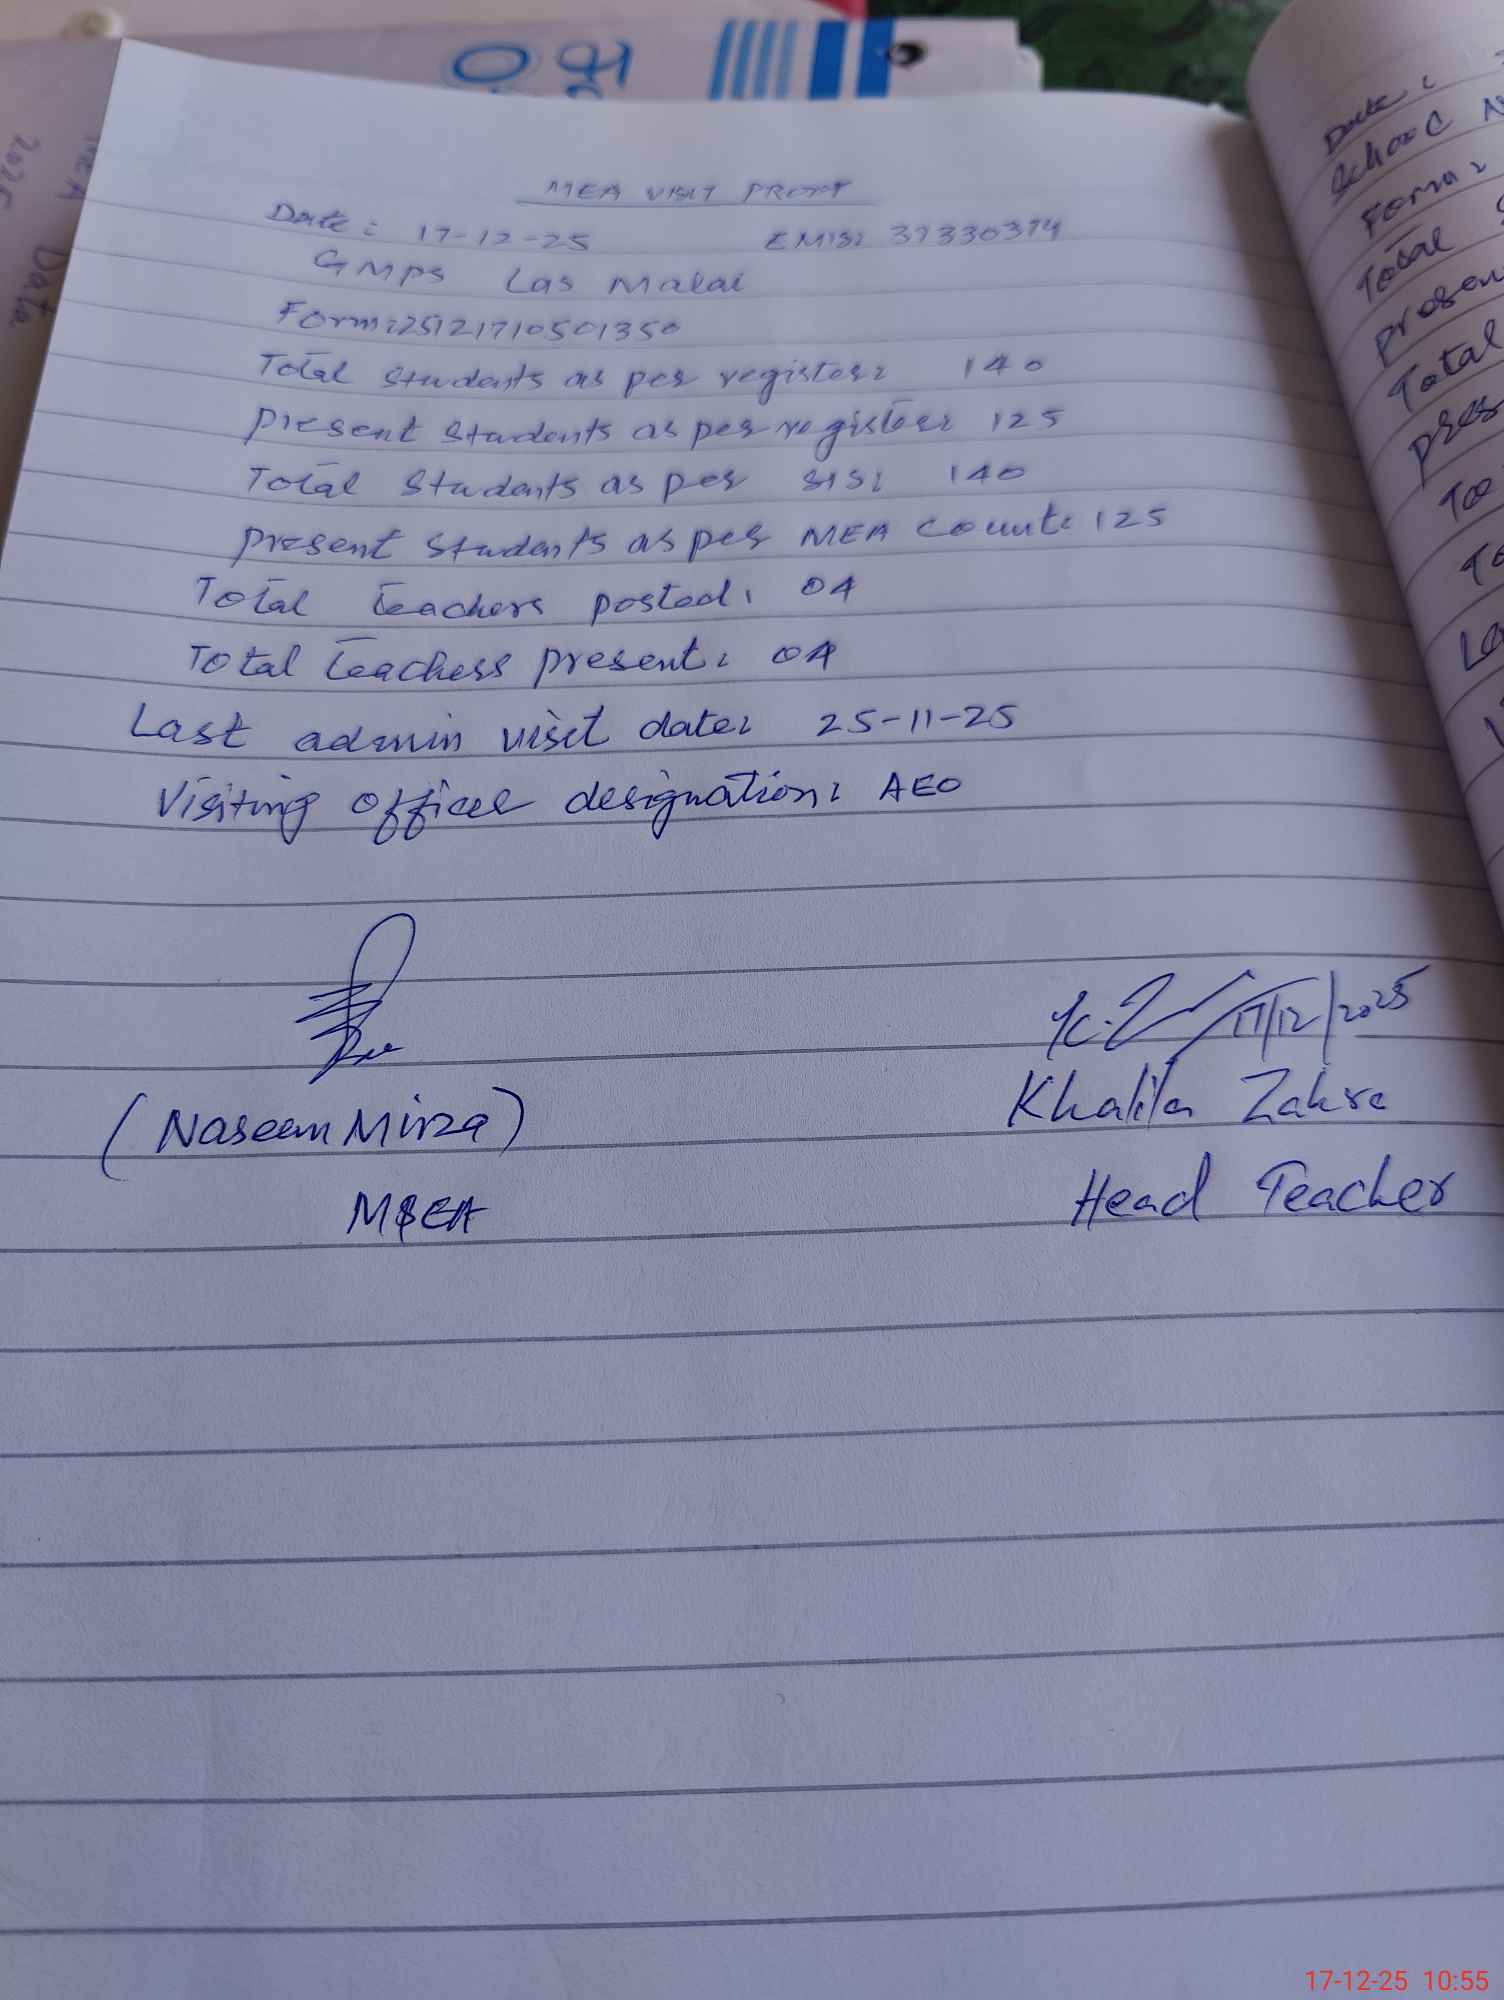 MEA VISIT PROOF
Date: 17-12-25 EMIS: 37330374
GMPS Las Malai
Form: 25121710501350
Total Students as per register: 140
Present Students as per register: 125
Total Students as per SIS: 140
Present Students as per MEA Count: 125
Total teachers posted: 04
Total teachers present: 04
Last admin visit date: 25-11-25
Visiting officer designation: AEO
17/12/2025
(Naseem Mirza)
Khalila Zahra
MEA
Head Teacher
Date:
School
Form:
Total
Present
Total
Data
2025
17-12-25 10:55